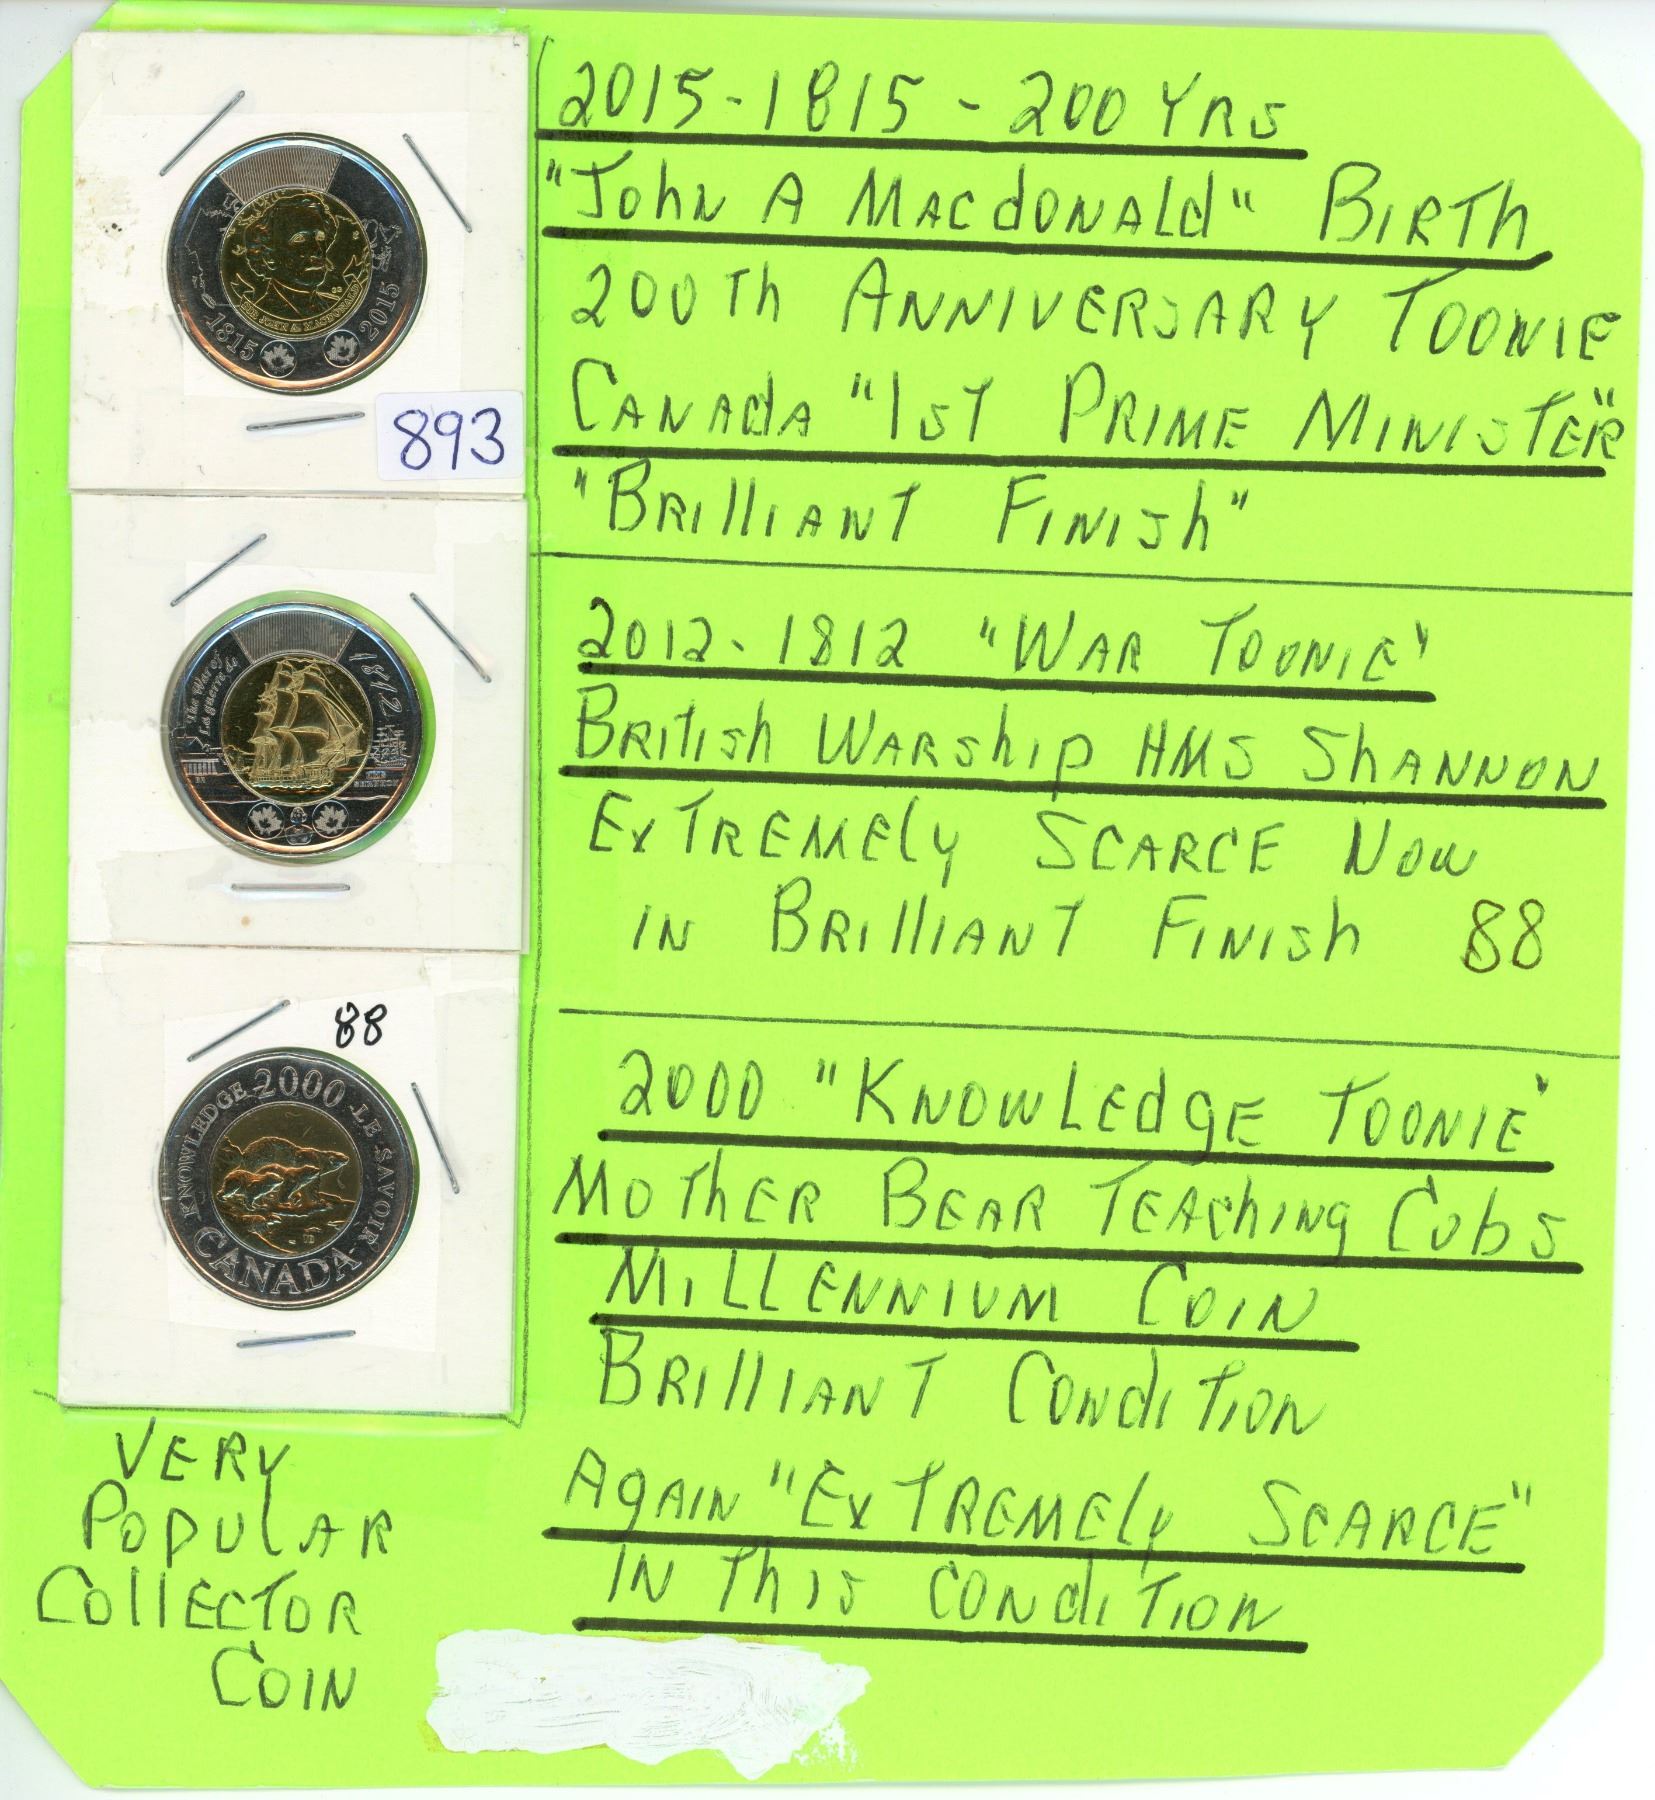 2015-1815-200 YRS
"John A MacDonald" Birth
200th Anniversary Toonie
Canada "1st Prime Minister"
"Brilliant Finish"
SIR JOHN A. MACDONALD
1815 2015
893
2012-1812 "War Toonie"
British Warship HMS Shannon
Extremely Scarce Now
in Brilliant Finish 88
The War of 1812
La guerre de
THE SHANNON
88
2000 "Knowledge Toonie"
Mother Bear Teaching Cubs
Millennium Coin
Brilliant Condition
Again "Extremely Scarce"
in This Condition
KNOWLEDGE 2000 LE SAVOIR
CANADA
Very
Popular
Collector
Coin